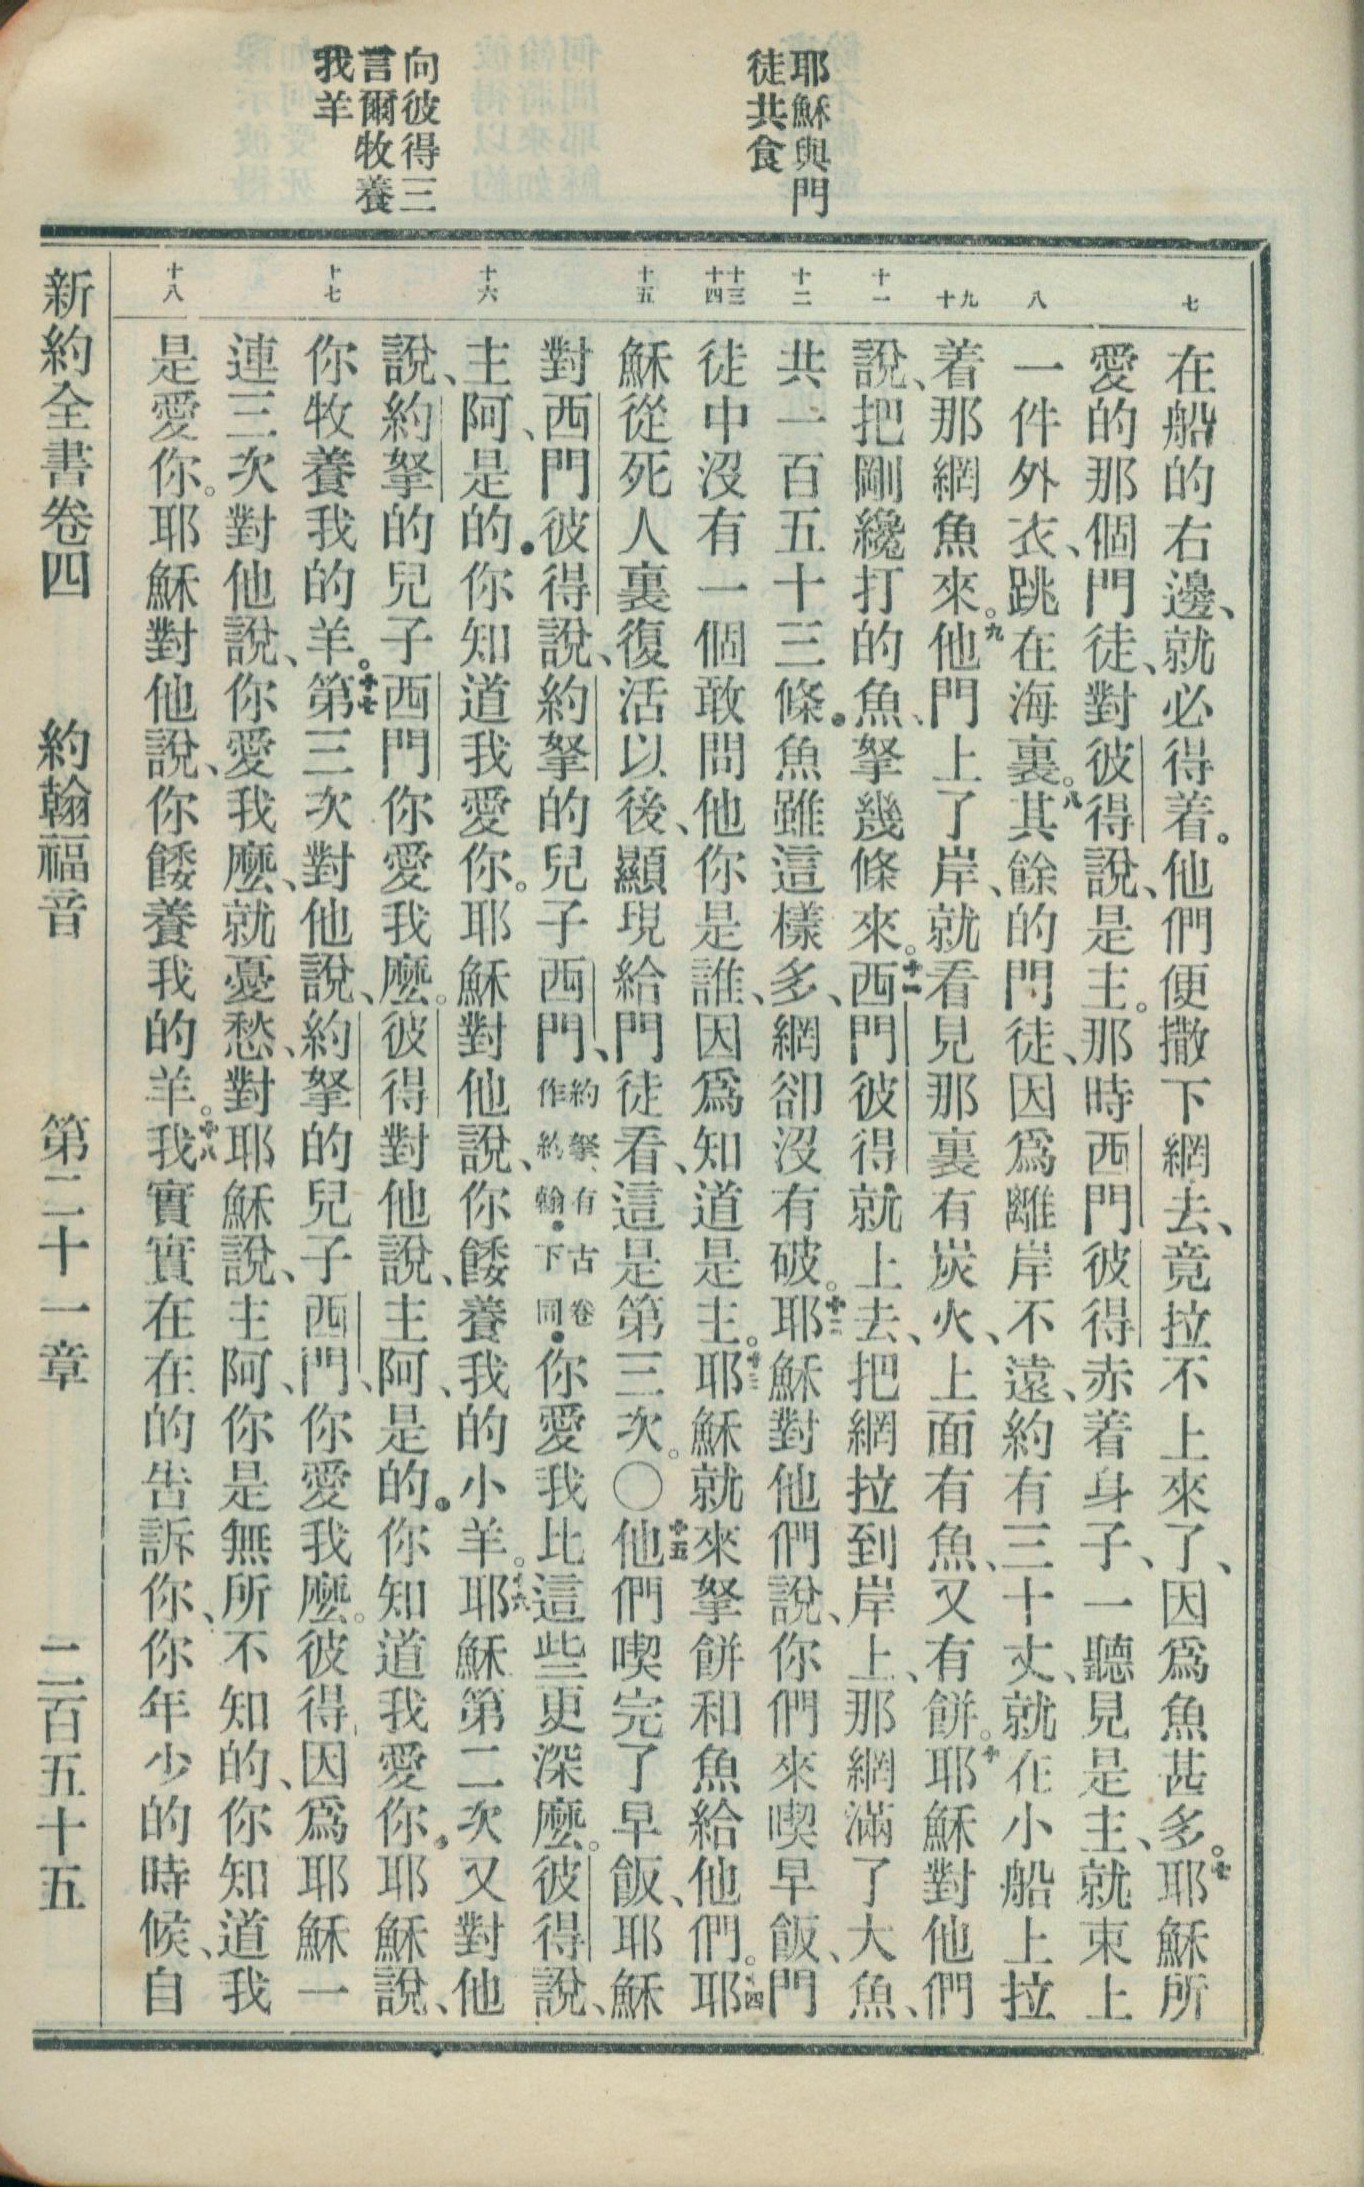 耶穌與門
徒共食
向彼得三
言爾牧養
我羊
七
八
九
十
十一
十二
十三
十四
十五
十六
十七
十八
在船的右邊、就必得着。他們便撒下網去、竟拉不上來了、因爲魚甚多。七耶穌所
愛的那個門徒、對彼得說、是主。那時西門彼得赤着身子、一聽見是主、就束上
一件外衣、跳在海裏。八其餘的門徒、因爲離岸不遠、約有三十丈、就在小船上拉
着那網魚來。九他門上了岸、就看見那裏有炭火、上面有魚、又有餅。十耶穌對他們
說、把剛纔打的魚、拏幾條來。十一西門彼得就上去、把網拉到岸上、那網滿了大魚、
共一百五十三條。魚雖這樣多、網卻沒有破。十二耶穌對他們說、你們來喫早飯、門
徒中沒有一個敢問他你是誰、因爲知道是主。十三耶穌就來拏餅和魚給他們。十四耶
穌從死人裏復活以後、顯現給門徒看、這是第三次。○十五他們喫完了早飯、耶穌
對西門彼得說、約拏的兒子西門、約拏、有古卷作約翰。下同。你愛我比這些更深麼。彼得說、
主阿、是的。你知道我愛你。耶穌對他說、你餧養我的小羊。十六耶穌第二次又對他
說、約拏的兒子西門你愛我麼。彼得對他說、主阿、是的。你知道我愛你。耶穌說、
你牧養我的羊。十七第三次對他說、約拏的兒子西門、你愛我麼。彼得因爲耶穌一
連三次對他說、你愛我麼、就憂愁、對耶穌說、主阿、你是無所不知的、你知道我
是愛你。耶穌對他說、你餧養我的羊。十八我實實在在的告訴你、你年少的時候、自
新約全書卷四 約翰福音 第二十一章 二百五十五